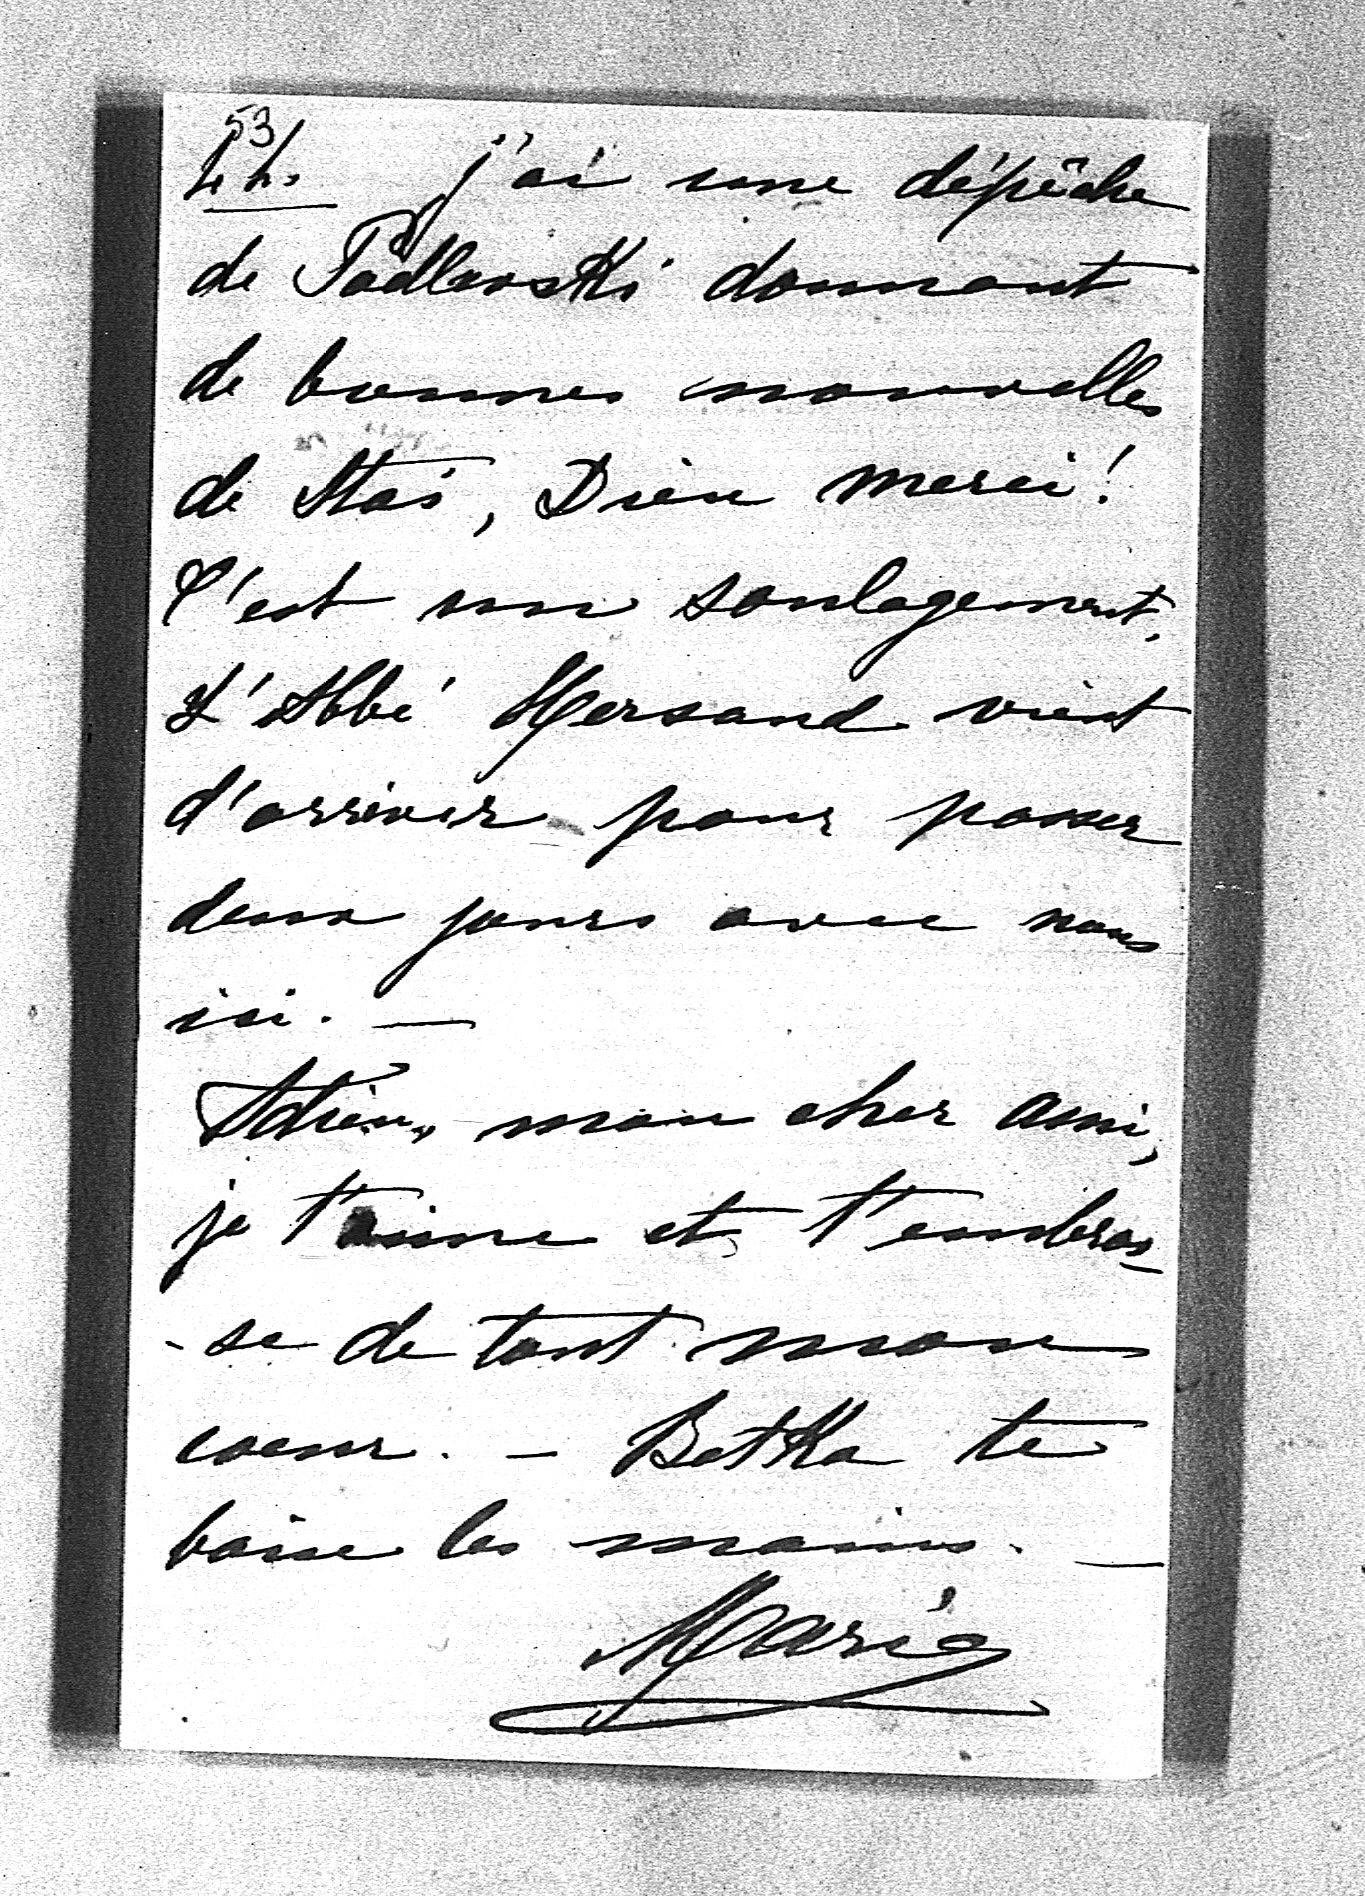 53
4 h. j'ai une dépêche
de Padlewski donnant
de bonnes nouvelles
de Staś, Dieu merci!
C'est un soulagement.
L'Abbé Mersand vient
d'arriver pour passer
deux jours avec nous
ici. —
Adieu, mon cher ami,
je t'aime et t'embras
-se de tout mon
coeur. — Betka te
baise les mains. —
Marie